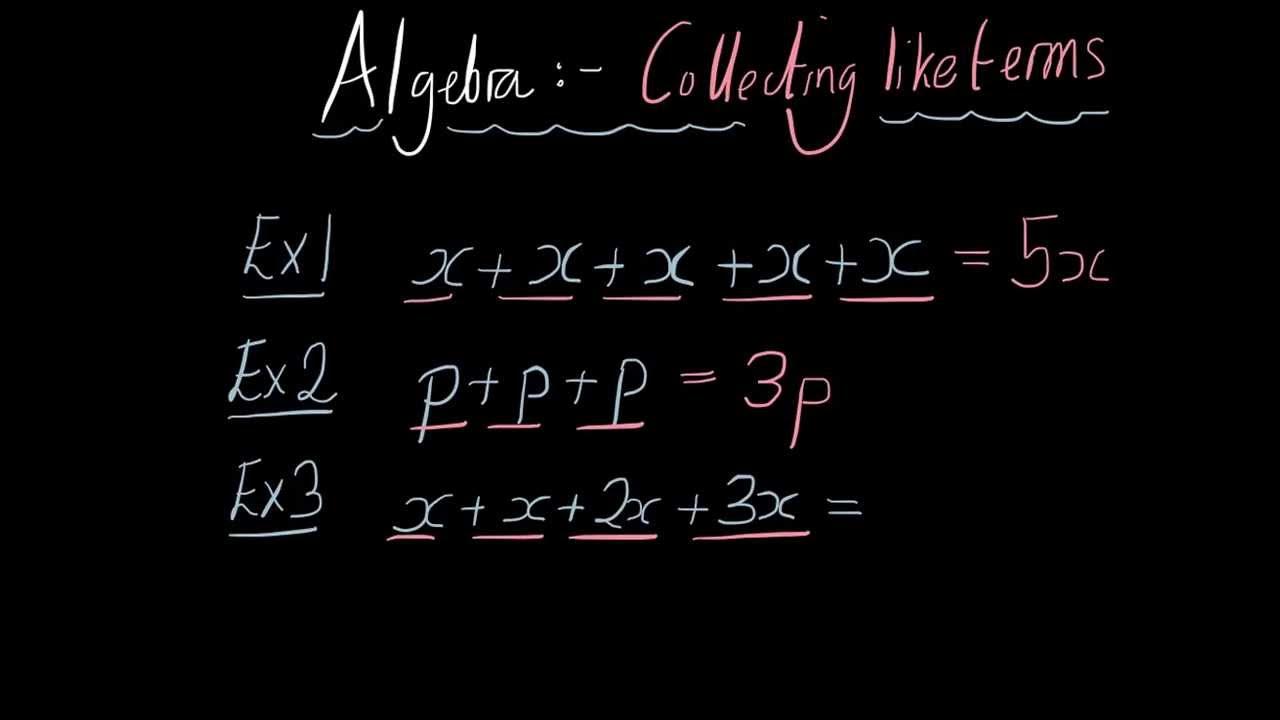 Algebra :- Collecting like terms
Ex1 x + x + x + x + x = 5x
Ex2 p + p + p = 3p
Ex3 x + x + 2x + 3x =